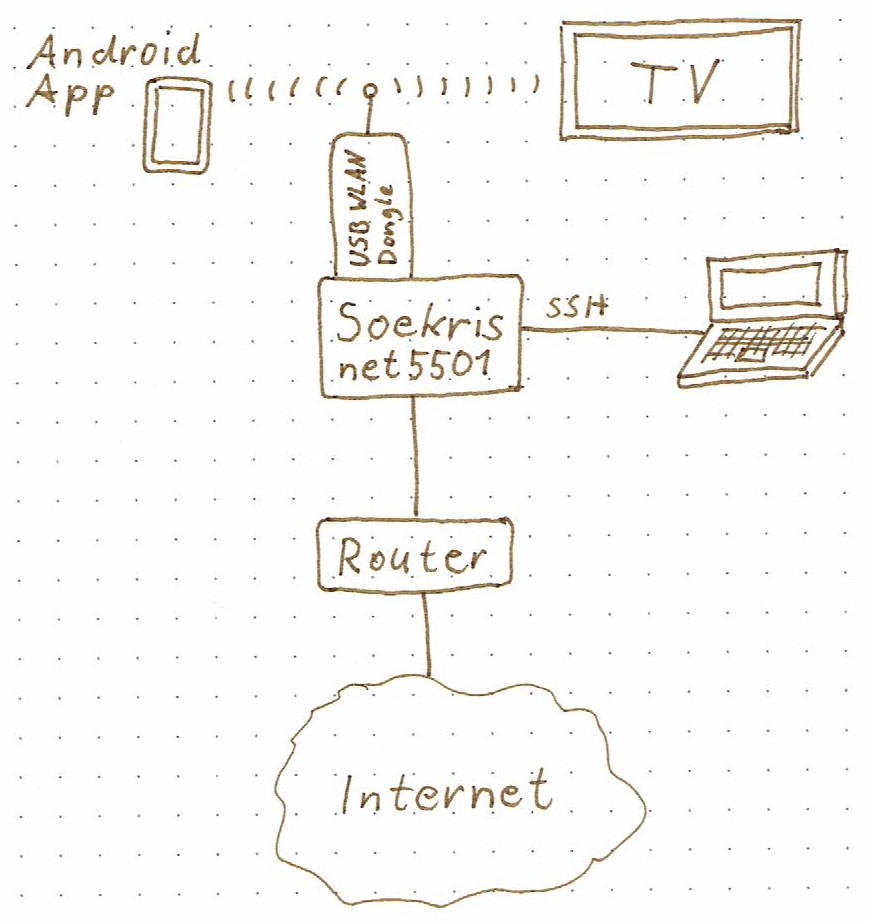 Android
App
TV
USB WLAN
Dongle
Soekris
net5501
SSH
Router
Internet